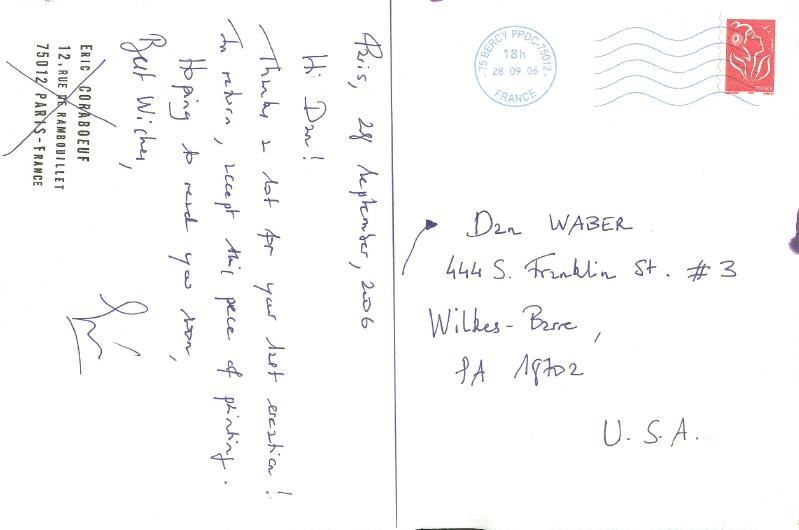 Paris, 28 September, 2006
Hi Dan!
Thanks a lot for your last creation!
In return, accept this piece of printing.
Hoping to read you soon,
Best Wiches,
ERIC CORABOEUF
12, RUE DE RAMBOUILLET
75012 PARIS-FRANCE
75 BERCY PPDC-75012
18h
28 09 06
FRANCE
FRANCE
Dan WABER
444 S. Franklin St. #3
Wilkes-Barre,
PA 18702
U.S.A.